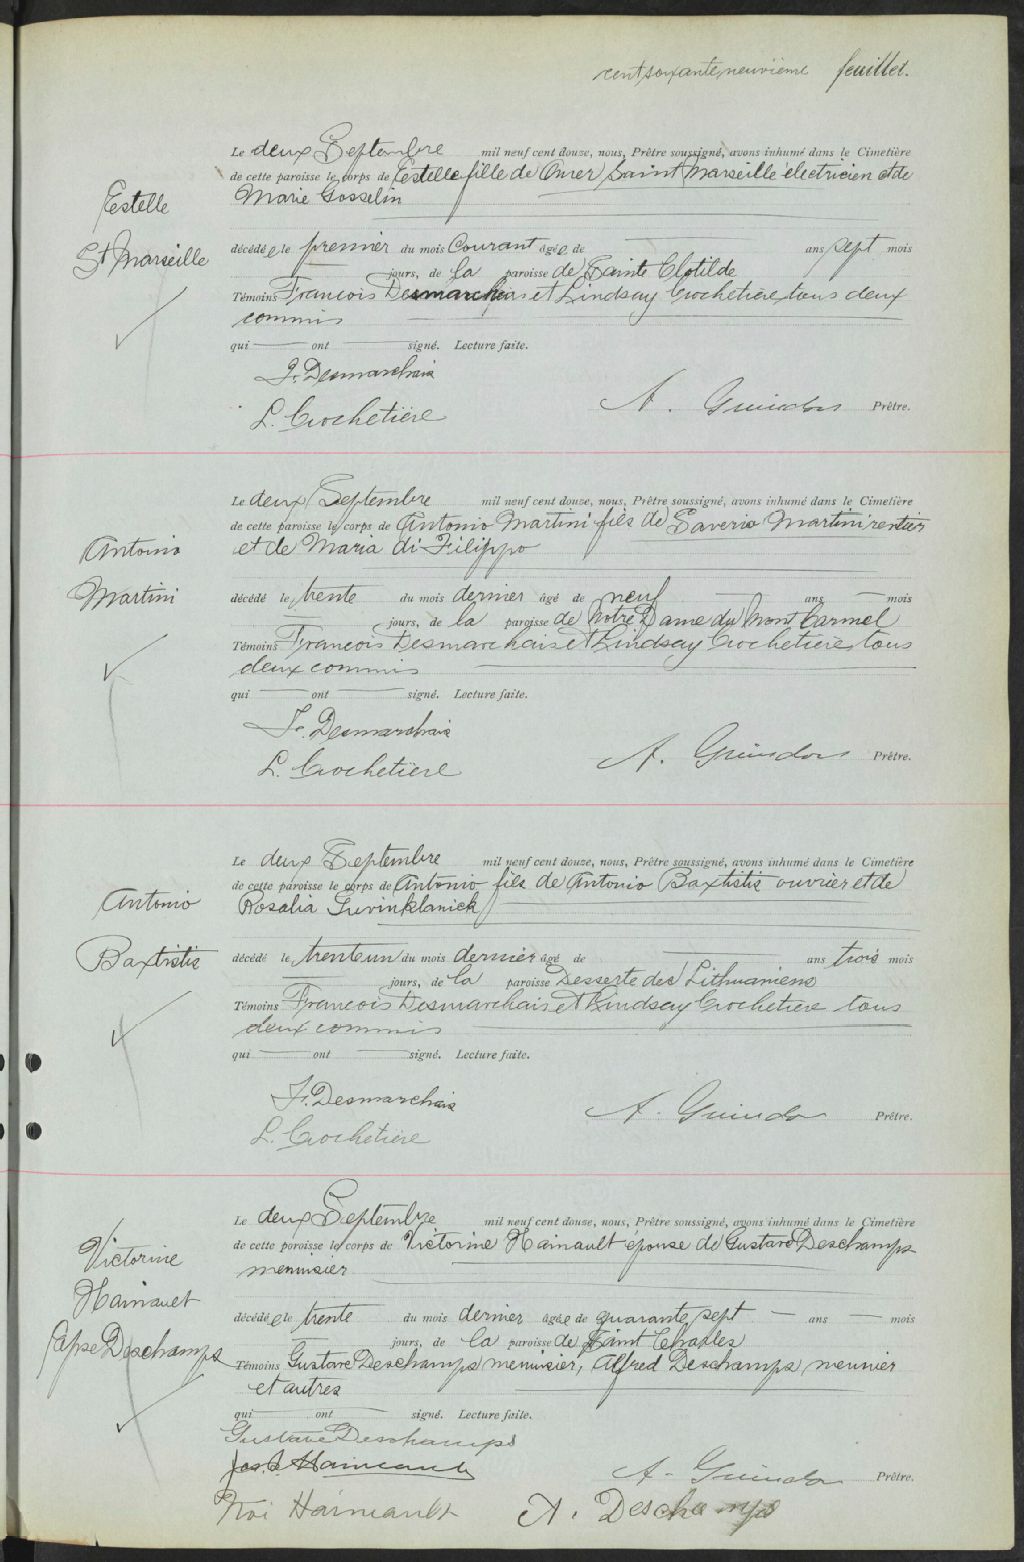 cent soixante neuvième feuillet.
Estelle
St Marseille
Le deux Septembre mil neuf cent douze, nous, Prêtre soussigné, avons inhumé dans le Cimetière
de cette paroisse le corps de Estelle fille de Omer Saint Marseille électricien et de
Marie Gosselin
décédée le premier du mois Courant âgée de ans sept mois
jours, de la paroisse de Sainte Clotilde
Témoins Francois Desmarchais et Lindsay Crochetière, tous deux
commis
qui ont signé. Lecture faite.
F. Desmarchais
L. Crochetière
A. Guindon Prêtre.
Antonio
Martini
Le deux Septembre mil neuf cent douze, nous, Prêtre soussigné, avons inhumé dans le Cimetière
de cette paroisse le corps de Antonio Martini fils de Saverio Martini rentier
et de Maria di Filippo
décédé le trente du mois dernier âgé de neuf ans mois
jours, de la paroisse de Notre Dame du Mont Carmel
Témoins Francois Desmarchais et Lindsay Crochetiere, tous
deux commis
qui ont signé. Lecture faite.
F. Desmarchais
L. Crochetière
A. Guindon Prêtre.
Antonio
Baxtistis
Le deux Septembre mil neuf cent douze, nous, Prêtre soussigné, avons inhumé dans le Cimetière
de cette paroisse le corps de Antonio fils de Antonio Baxtistis ouvrier et de
Rosalia
décédé le trente un du mois dernier âgé de ans trois mois
jours, de la paroisse Desserte des Lithuaniens
Témoins Francois Desmarchais et Lindsay Crochetiere tous
deux commis
qui ont signé. Lecture faite.
F. Desmarchais
L. Crochetière
A. Guindon Prêtre.
Victorine
Hainault
Deschamps
Le deux Septembre mil neuf cent douze, nous, Prêtre soussigné, avons inhumé dans le Cimetière
de cette paroisse le corps de Victorine Hainault épouse de Gustave Deschamps
menuisier
décédée le trente du mois dernier âgée de quarante sept ans mois
jours, de la paroisse de Saint Charles
Témoins Gustave Deschamps menuisier, Alfred Deschamps, meunier
et autres
qui ont signé. Lecture faite.
Gustave Deschamps
Hainault
A. Guindon Prêtre.
Hainault A. Deschamps